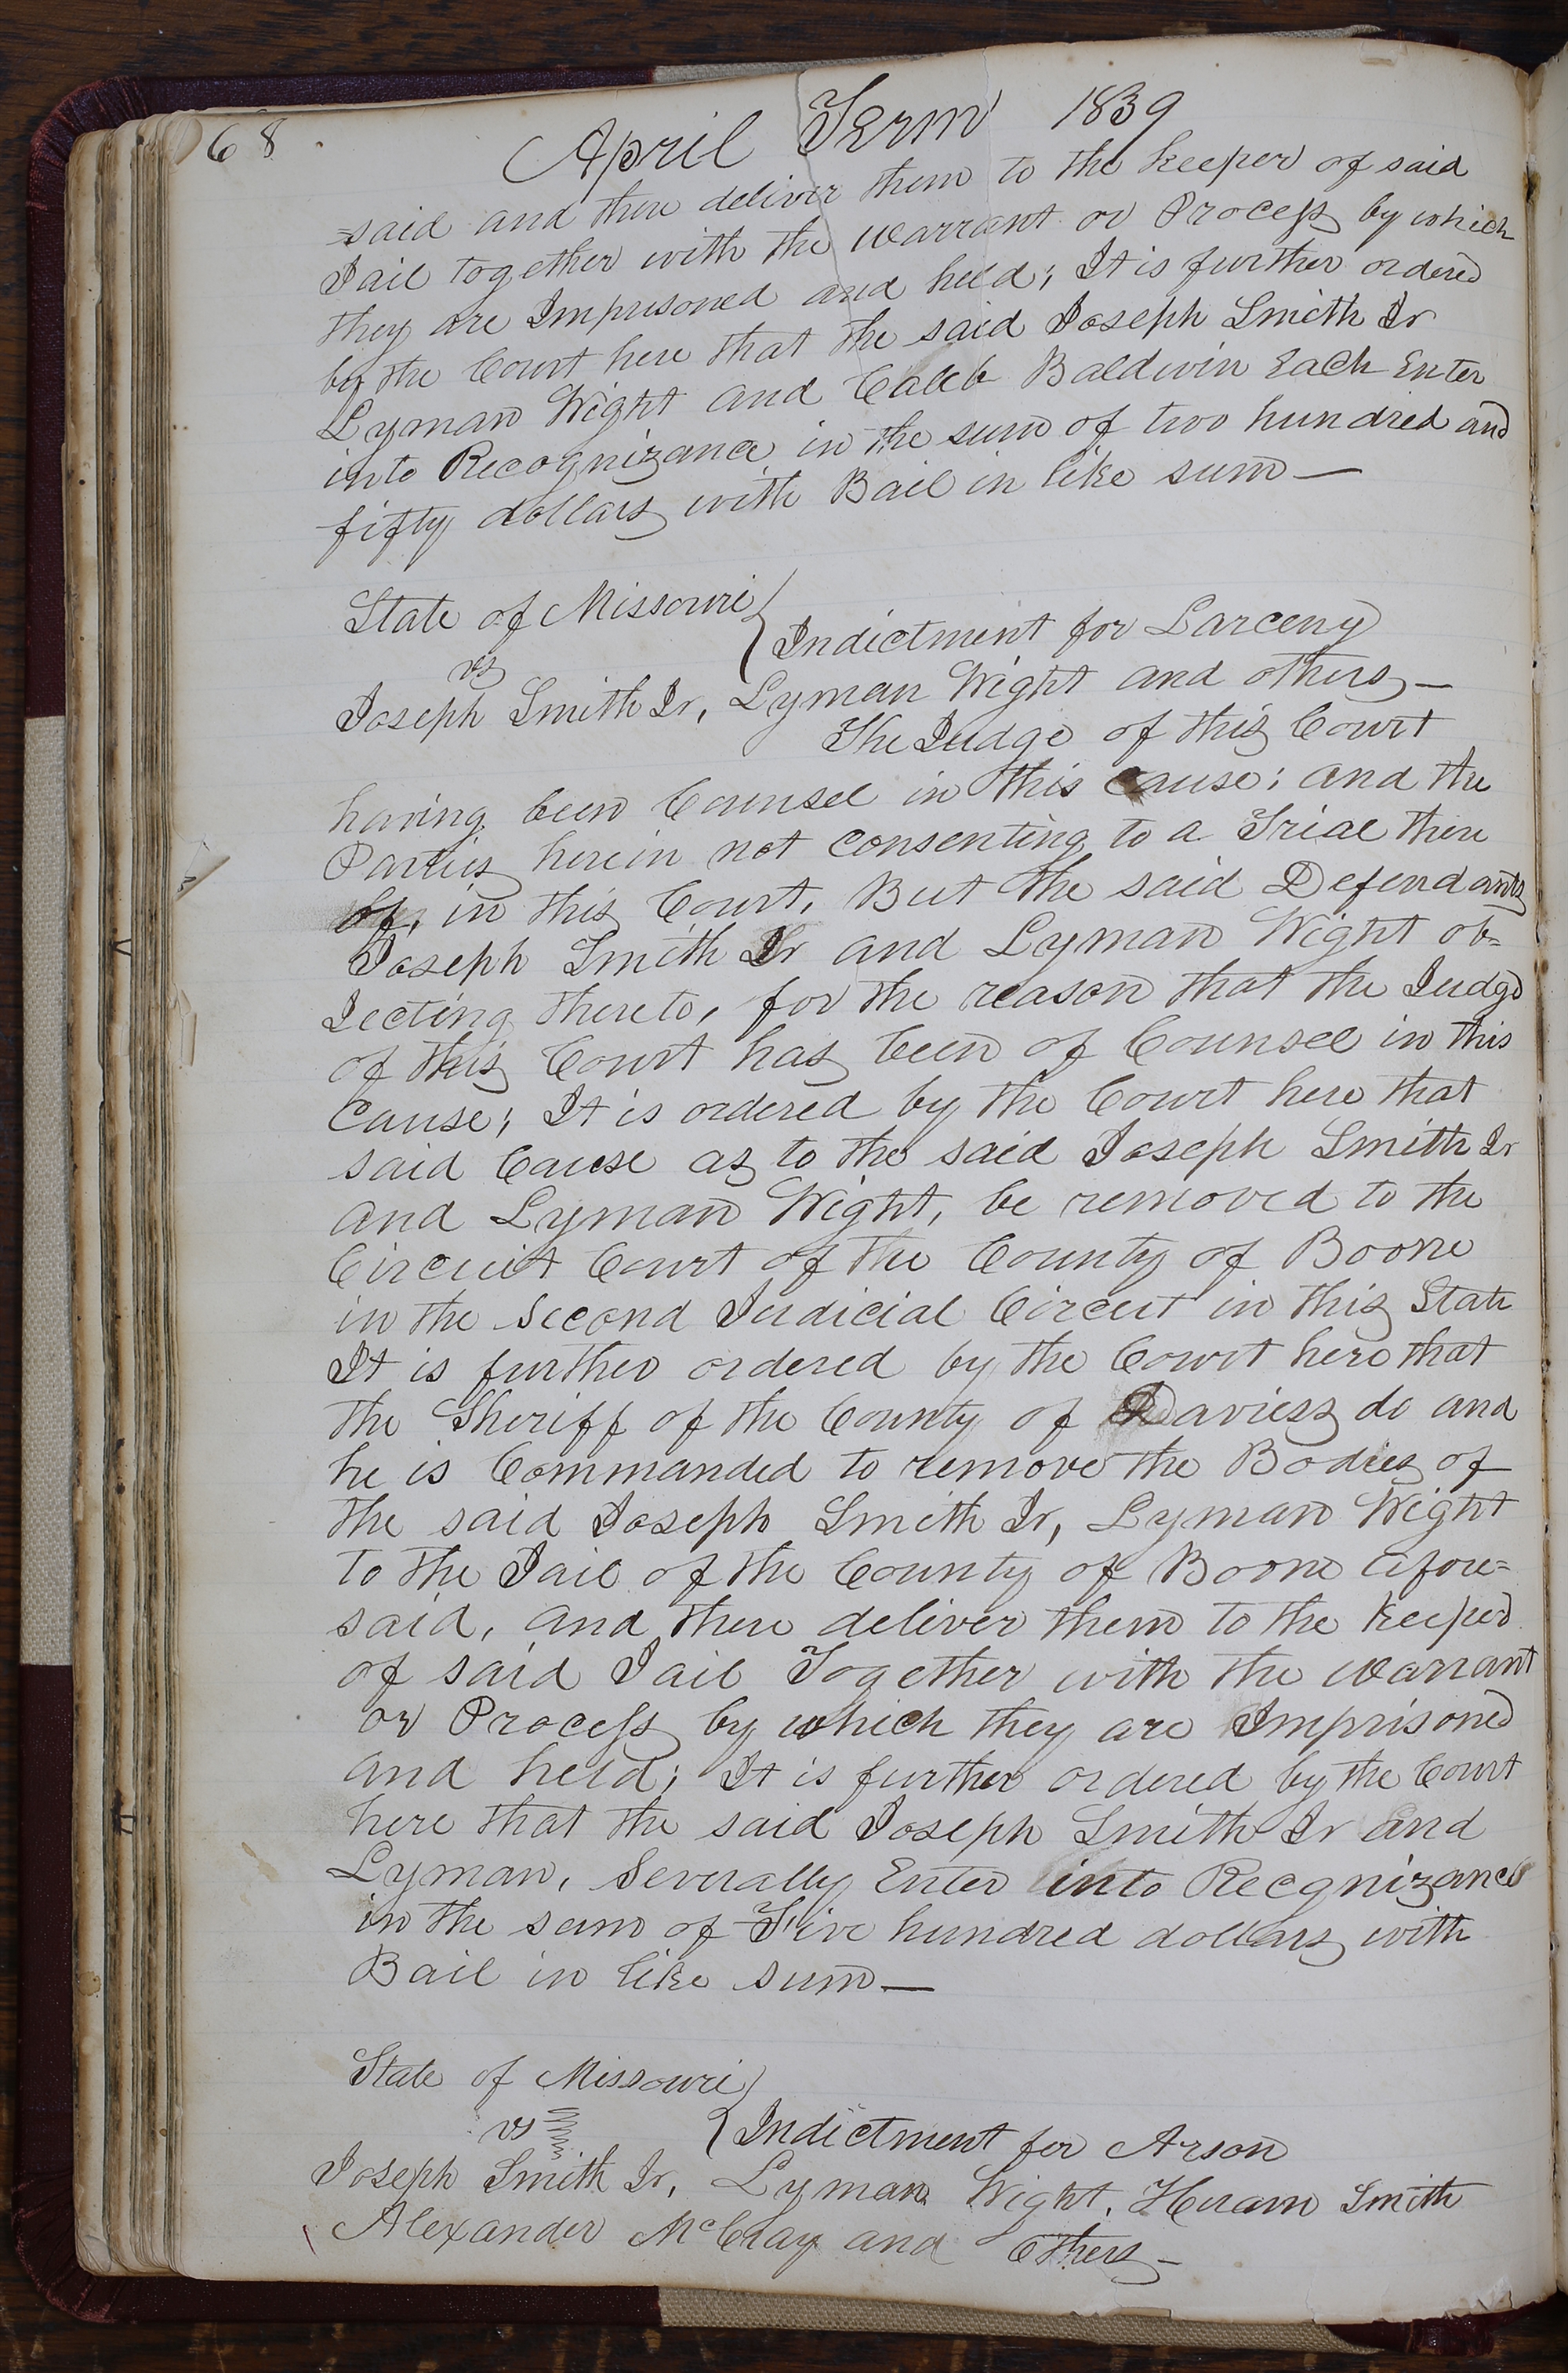 68
April Term 1839
said and there deliver them to the keeper of said
Jail together with the warrant or Process by which
they are Imprisoned and held; It is further ordered
by the Court here that the said Joseph Smith Jr
Lyman Wight and Caleb Baldwin Each Enter
into Recognizance in the sum of two hundred and
fifty dollars with Bail in like sum—
State of Missouri
vs
Indictment for Larceny
Joseph Smith Jr, Lyman Wight and others—
The Judge of this Court
having been Counsel in this Cause; and the
Parties herein not consenting to a Trial there
of, in this Court, But the said Defendants
Joseph Smith Jr and Lyman Wight ob=
Jecting thereto, for the reason that the Judge
of this Court has been of Counsel in this
Cause; It is ordered by the Court here that
said Cause as to the said Joseph Smith Jr
and Lyman Wight, be removed to the
Circuit Court of the County of Boone
in the Second Judicial Circut in this State
It is further ordered by the Court here that
the Sheriff of the County of Daviess do and
he is Commanded to remove the Bodies of
the said Joseph Smith Jr, Lyman Wight
to the Jail of the County of Boone afore=
said, and there deliver them to the keeper
of said Jail Together with the warrant
or Process by which they are Imprisoned
and held; It is further ordered by the Court
here that the said Joseph Smith Jr and
Lyman, Severally Enter into Recgnizance
in the sum of Five hundred dollars with
Bail in like sum—
State of Missouri
vs
Indictment for Arson
Joseph Smith Jr, Lyman Wight, Hiram Smith
Alexander McCray and Others—